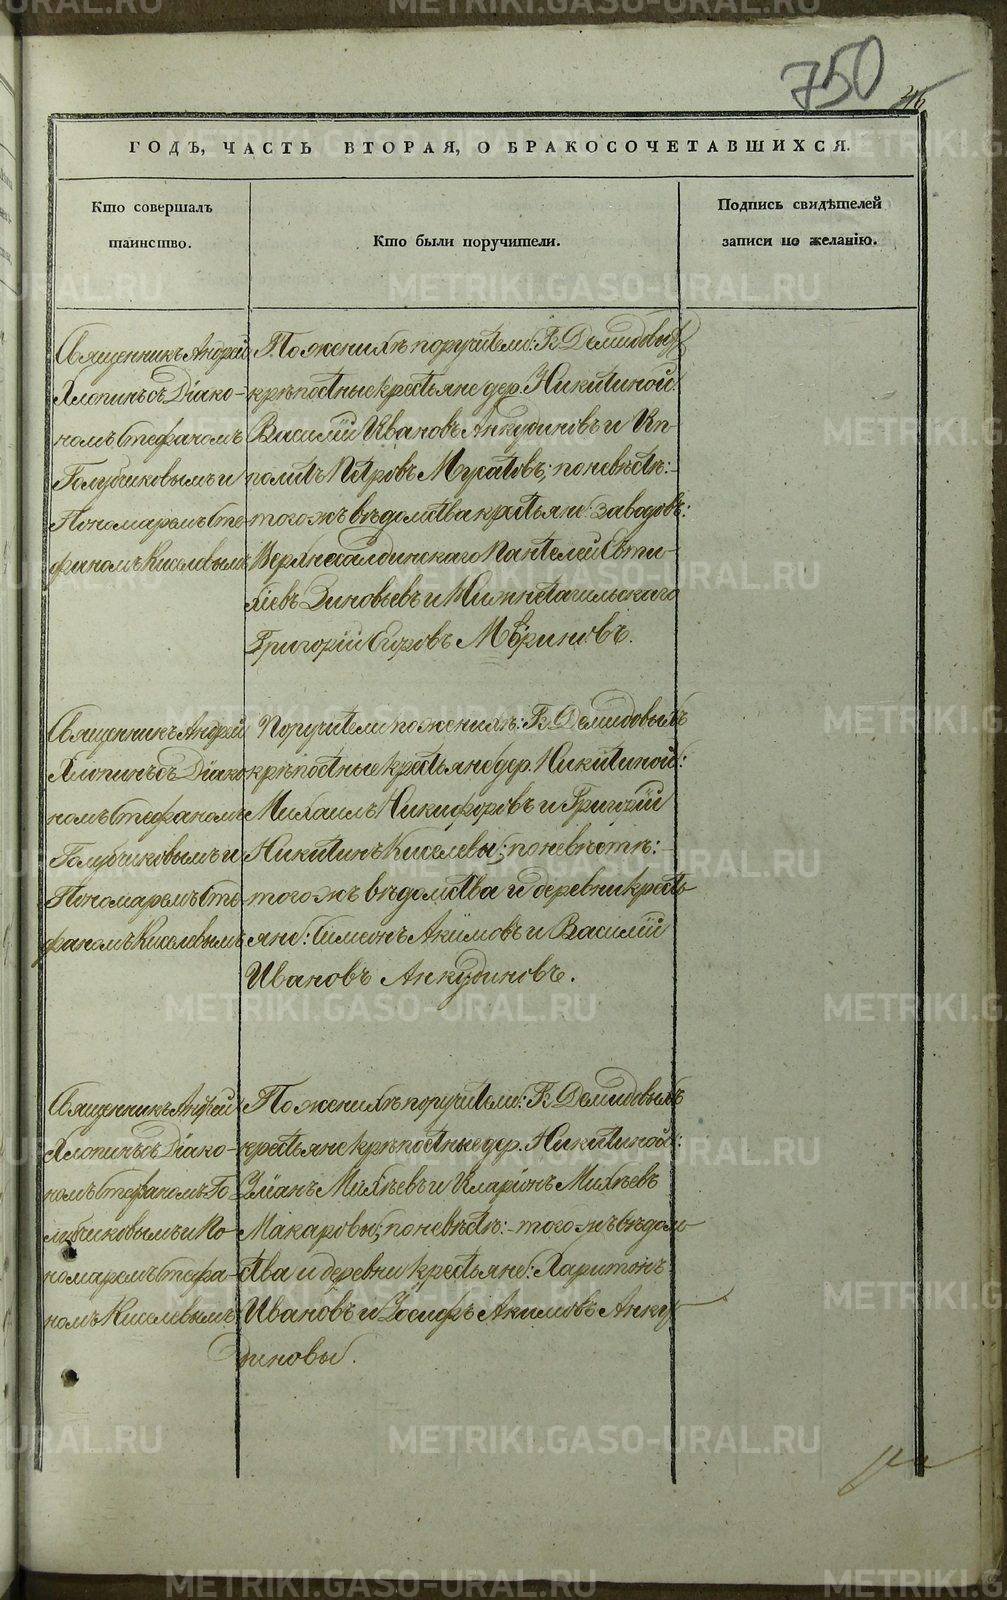 750
ГОДЪ, ЧАСТЬ ВТОРАЯ, О БРАКОСОЧЕТАВШИХСЯ.
Кто совершалъ
таинство.
Кто были поручители.
Подпись свидѣтелей
записи по желанію.
Священникъ Андрей
Хлопинъ съ Діако-
номъ Стефаномъ
Голубчиковымъ и
Пономаремъ Сте-
фаномъ Киселевымъ
По женихѣ поручители: Г. Демидовыхъ
крѣпостные крестьяне дер. Никитиной:
Василій Ивановъ Анкудиновъ и Ип-
политъ Петровъ Мусатовъ; по невѣстѣ:-
того жъ вѣдомства крестьяне: заводовъ:
Верхнесалдинскаго Пантелей Евти-
хіевъ Зиновьевъ и Нижнетагильскаго
Григорій Сидровъ Мѣриновъ.
Священникъ Андрей
Хлопинъ съ Діако
номъ Стефаномъ
Голубчиковымъ и
Пономаремъ Сте
фаномъ Киселевымъ
Поручители по женихѣ: Г. Демидовыхъ
крѣпостные крестьяне дер. Никитиной:
Михаилъ Никифоровъ и Григорій
Никитинъ Киселевы; по невѣстѣ:-
того жъ вѣдомства и деревни кресть
яне: Симеонъ Акимовъ и Василій
Ивановъ Анкудиновъ.
Священникъ Андрей
Хлопинъ съ Діако-
номъ Стефаномъ Го
лубчиковымъ и По
номаремъ Стефа-
номъ Киселевымъ
По женихѣ поручители: Г. Демидовыхъ
крестьяне крѣпостные дер. Никитиной:
Уліанъ Михѣевъ и Иларіонъ Михѣевъ
Макаровы; по невѣстѣ:- того жъ вѣдом
ства и деревни крестьяне: Харитонъ
Ивановъ и Іосифъ Акимовъ Анку
диновы.
METRIKI.GASO-URAL.RU